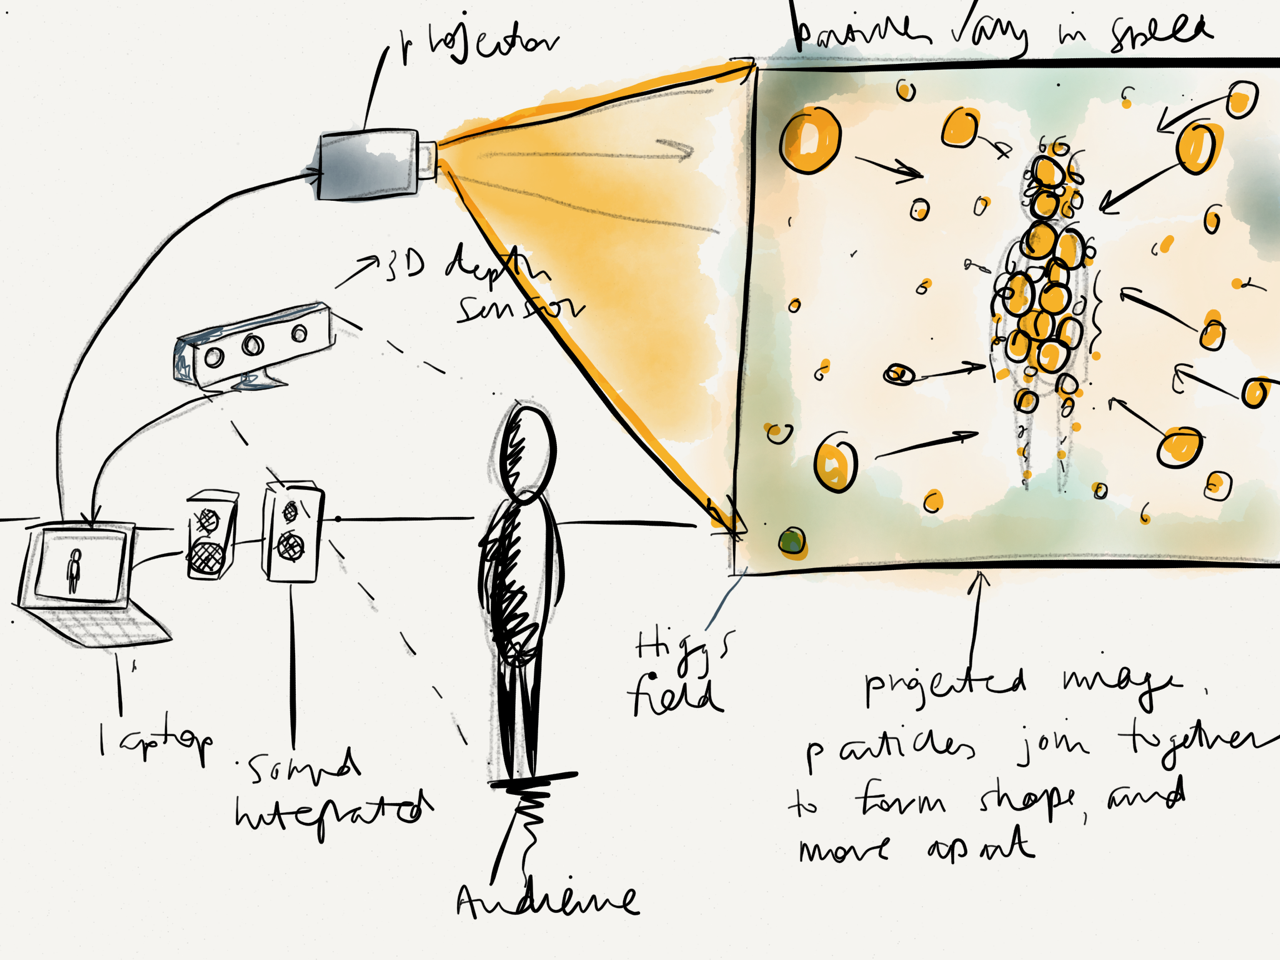 projector
particles vary in speed
3D depth
sensor
Higgs
field
laptop
sound
integrated
Audience
projected image,
particles join together
to form shape, and
move apart